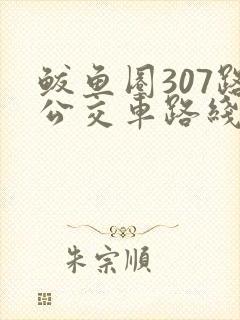 鲅鱼圈307路
公交車路綫
朱宗順